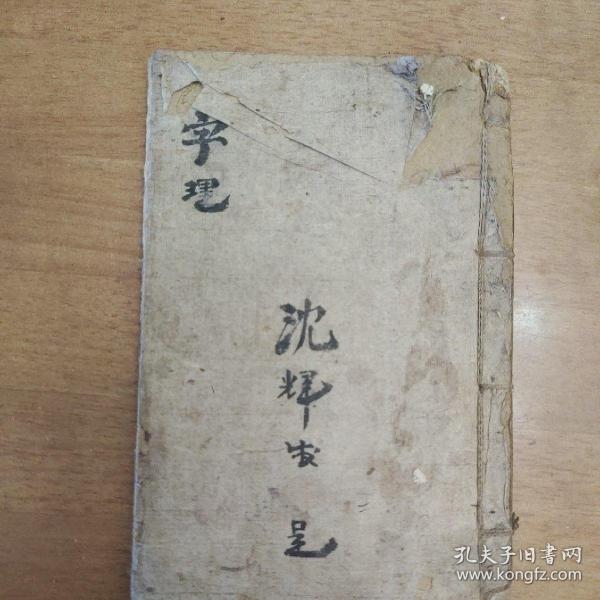 字理
沈輝发 呈
孔夫子旧書网
www.kongfz.com